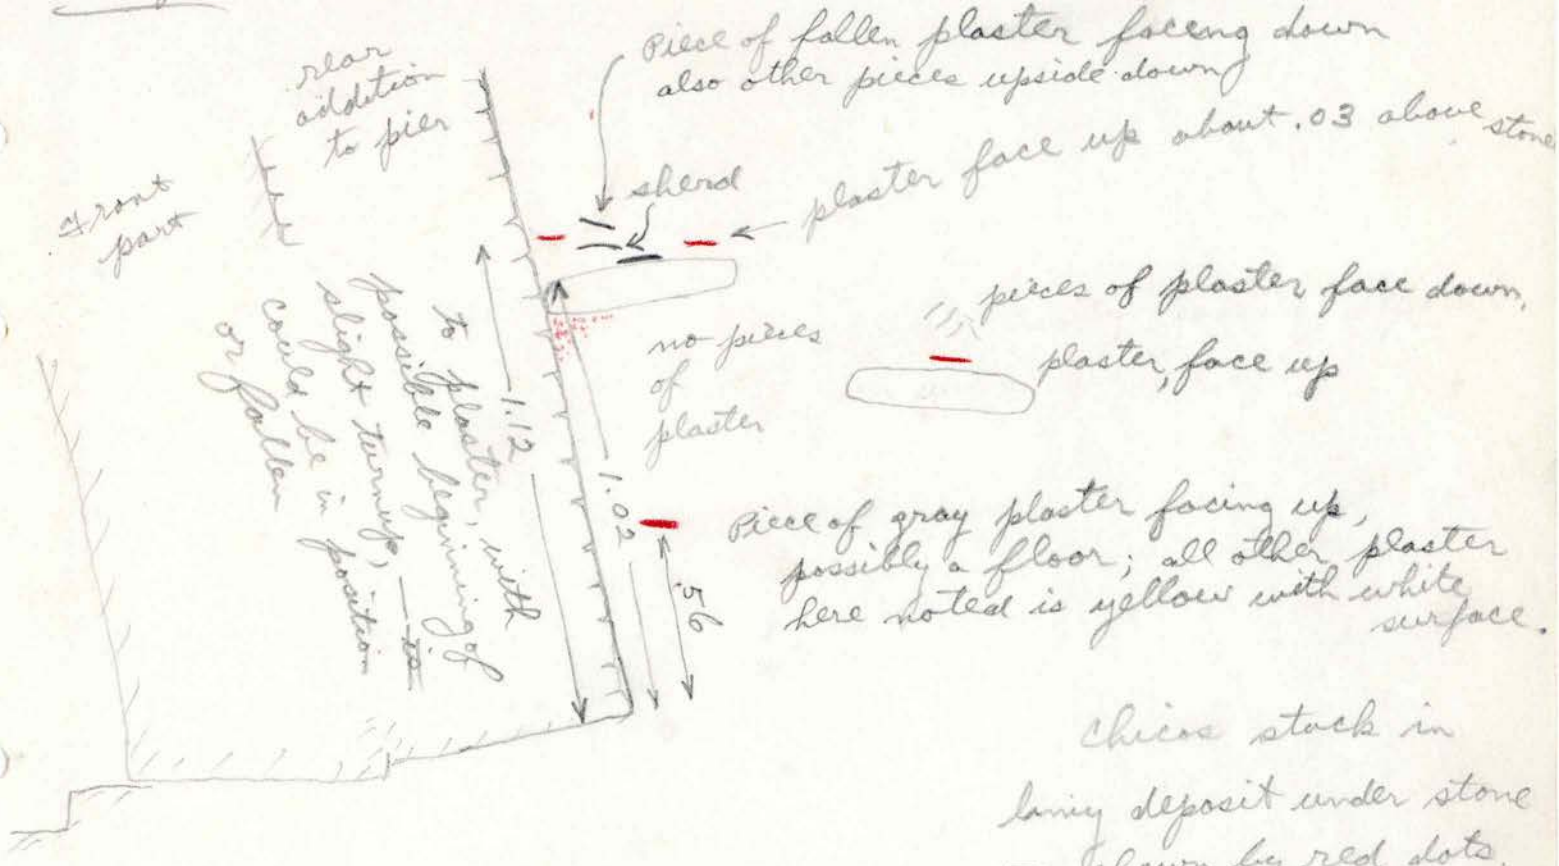 Piece of fallen plaster faceng down
also other pieces upside down
rear
addition
to pier
sherd
plaster face up about .03 above stone
Front
part
pieces of plaster face down,
plaster, face up
no pieces
of
plaster
1.12
to plaster, with
possible beginning of
slight turnup,
could be in position
or fallen
1.02
.56
Piece of gray plaster facing up,
possibly a floor; all other plaster
here noted is yellow with white
surface.
Chicos stuck in
limy deposit under stone
shown by red dots.